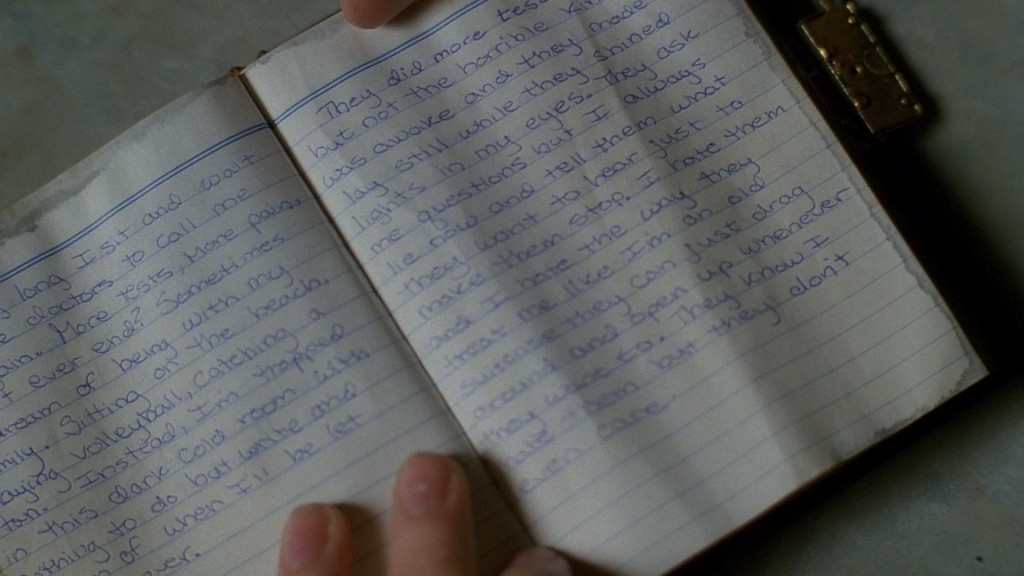 long I sit and wait
doctors to call me
More tests, More pain.
ever end? Sometimes
of being with my
Sitting on the beach,
volleyball, catching a
Instead, I'm trapped
in this dark cold room with
to do but write and
of when I'll be let
They did more tests
but not the horrible
was awake and they made
lay still while they shined
lights in my eyes. They ask
me questions but I always
lie now and tell them what
they want to hear just to
make them stop. I hate them
and I hate the way they
treat me like I'm an old
they can just drag
around and open up whenever
they want to. They know I
hate them but they don't
even care